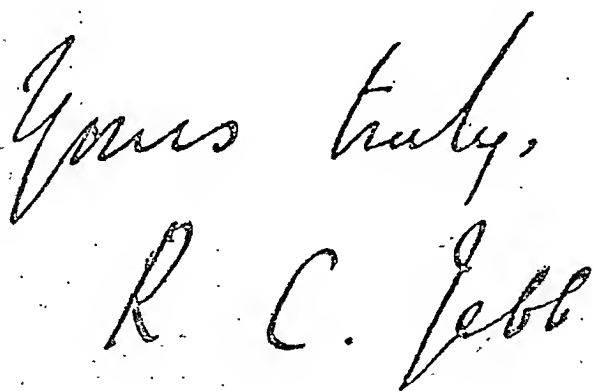 Yours truly,
R. C. Jebb